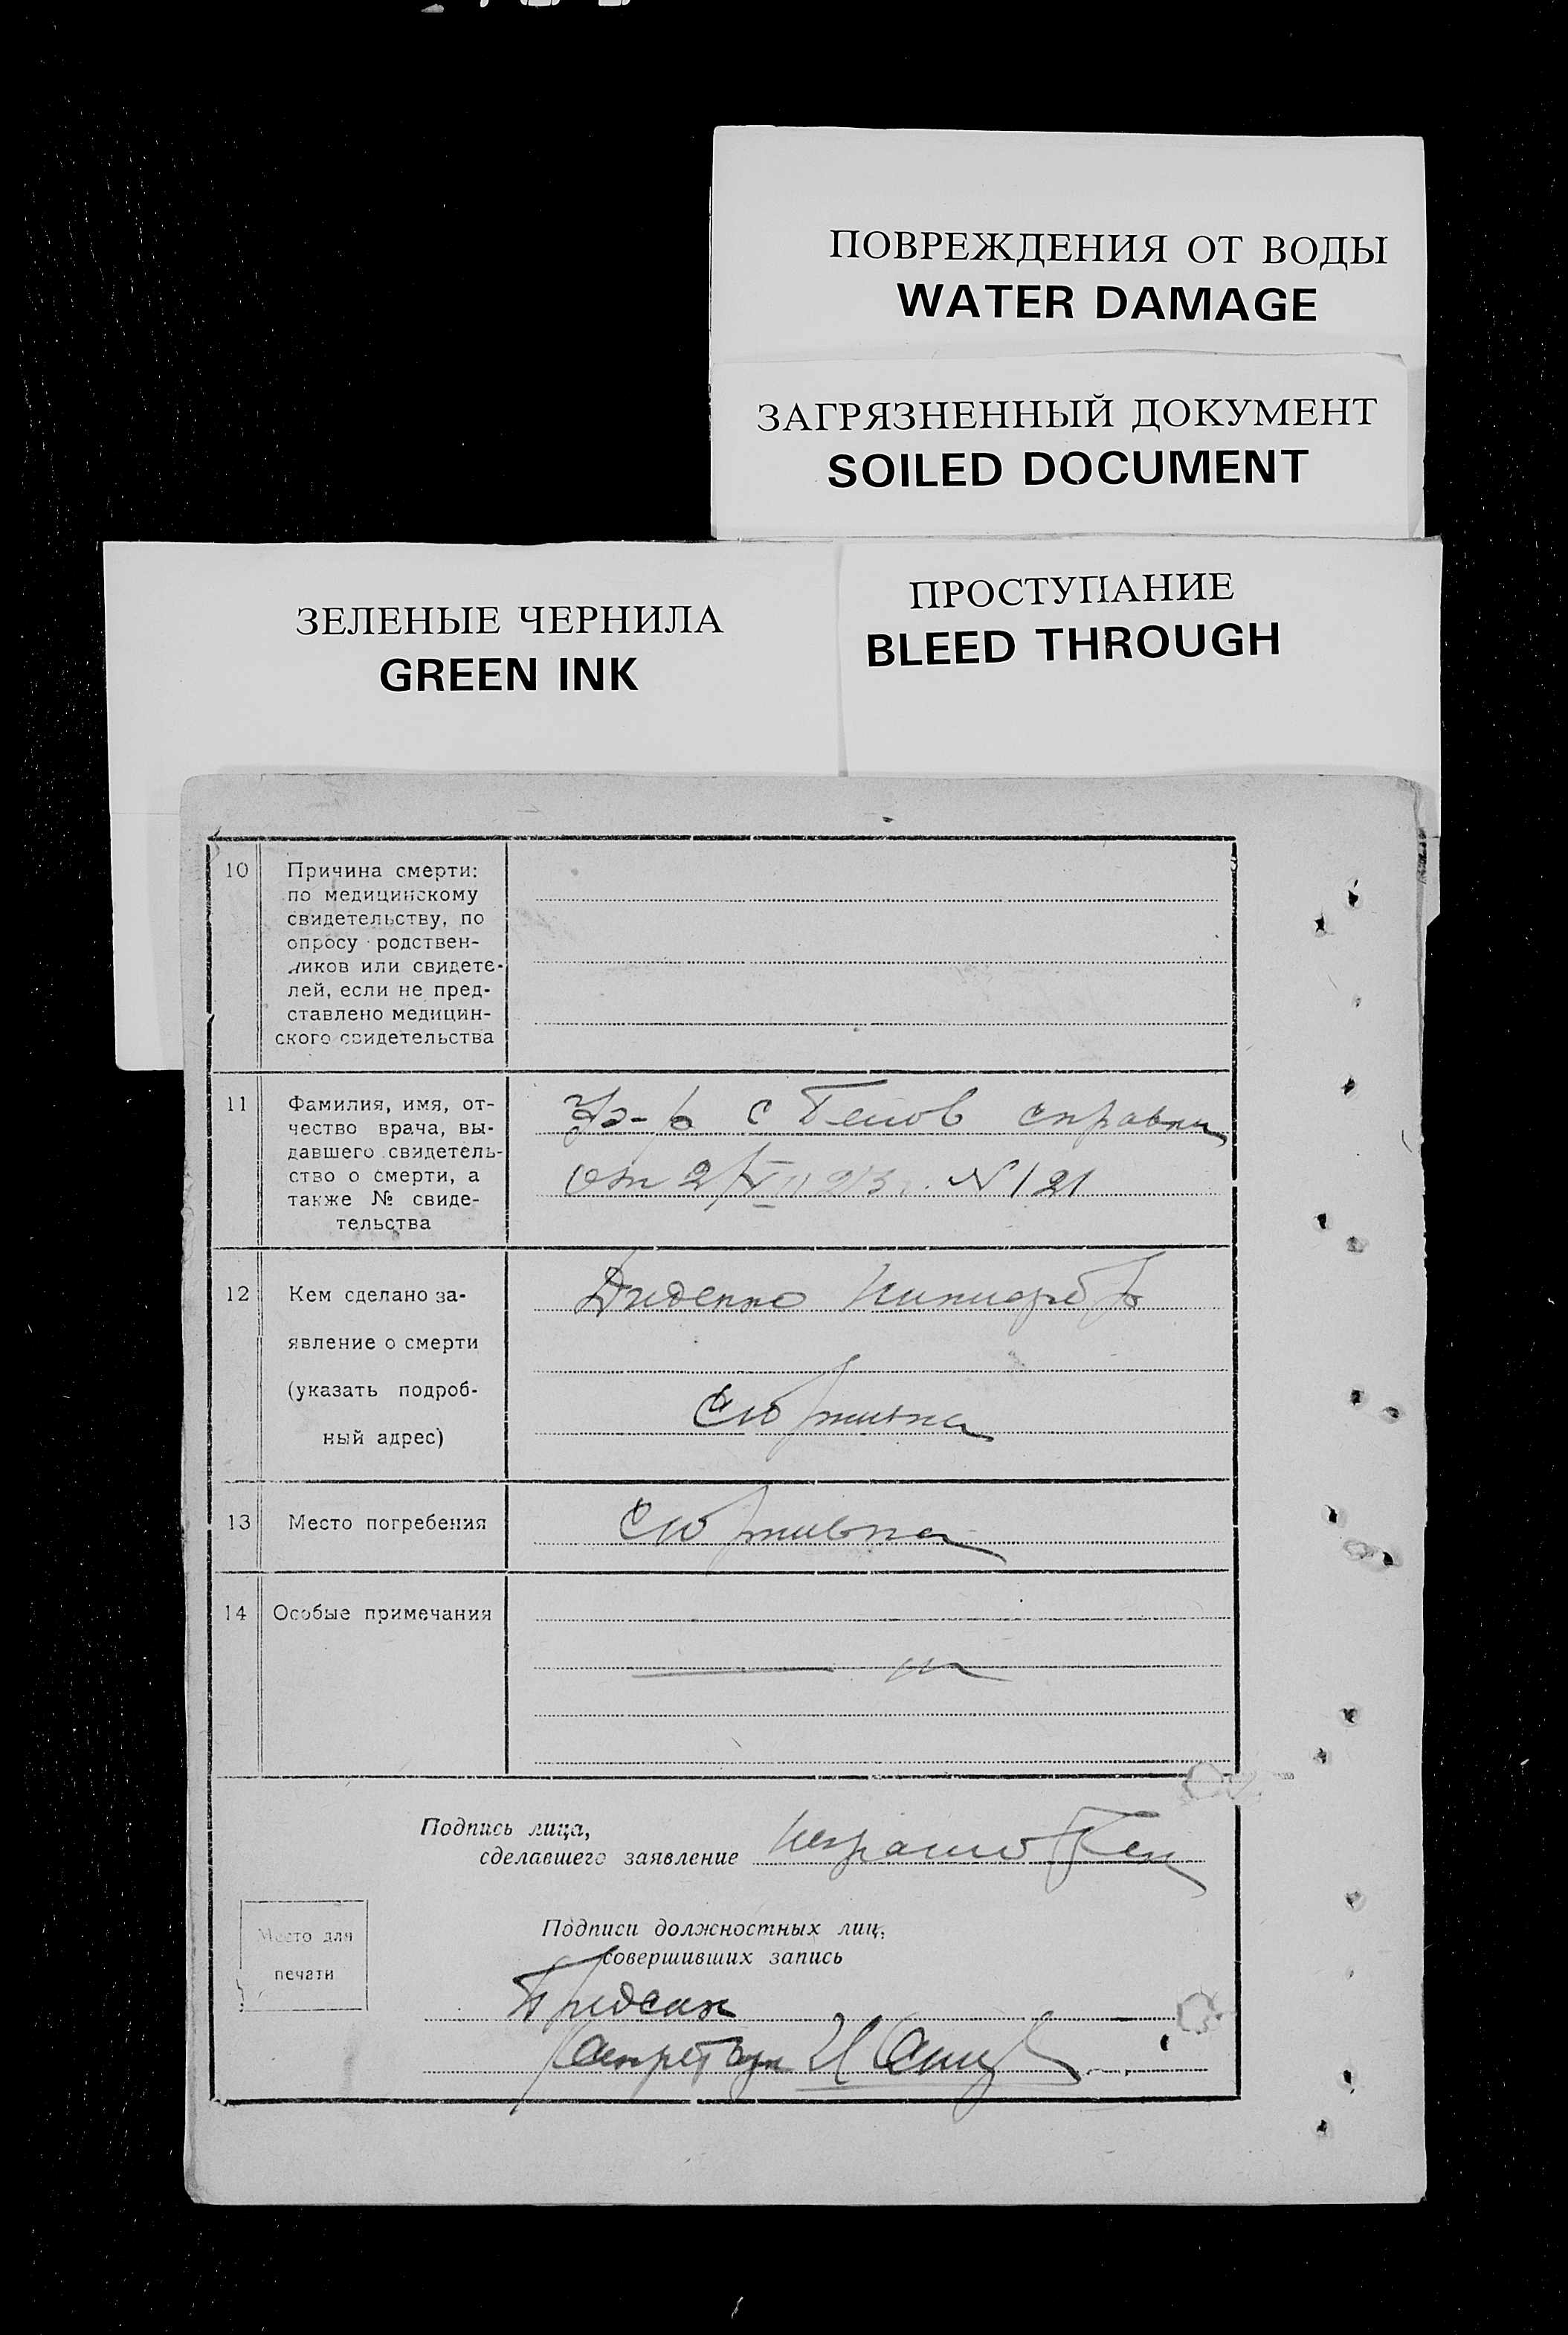 ПОВРЕЖДЕНИЯ ОТ ВОДЫ
WATER DAMAGE
ЗАГРЯЗНЕННЫЙ ДОКУМЕНТ
SOILED DOCUMENT
ЗЕЛЕНЫЕ ЧЕРНИЛА
GREEN INK
ПРОСТУПАНИЕ
BLEED THROUGH
10
Причина смерти:
по медицинскому
свидетельству, по
опросу родствен-
ников или свидете-
лей, если не пред-
ставлено медицин-
ского свидетельства
11
Фамилия, имя, от-
чество врача, вы-
давшего свидетель-
ство о смерти, а
также № свиде-
тельства
справки
от 2/ N 121
12
Кем сделано за-
явление о смерти
(указать подроб-
ный адрес)
Диденко
13
Место погребения
14
Особые примечания
Подпись лица,
сделавшего заявление
Подписи должностных лиц,
совершивших запись
Место для
печати